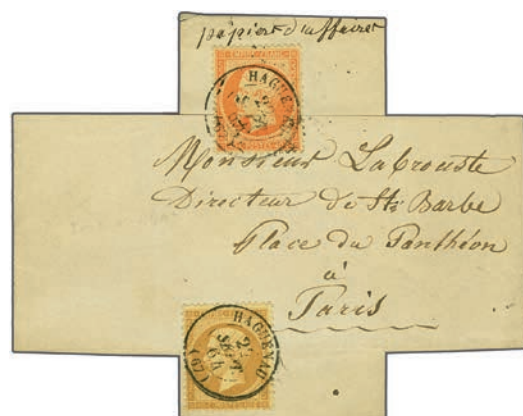 papiers d'affaires
EMPIRE FRANC
HAGUENAU
POSTES
Monsieur Labrouste
Directeur de Ste Barbe
Place du Panthéon
à
Paris
HAGUENAU
SEPT.
64
(67)